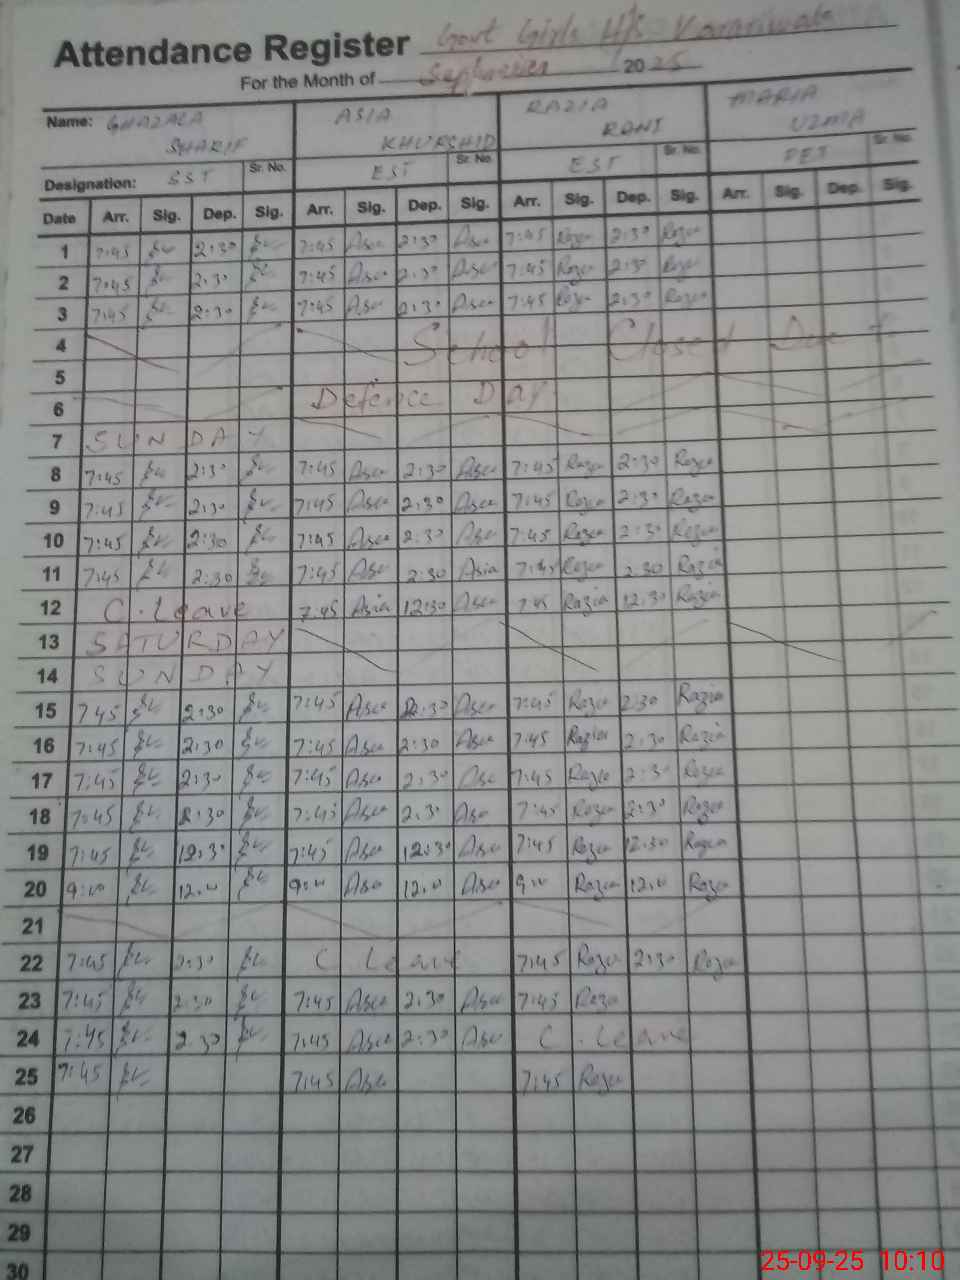 Attendance Register Govt Girls H/S
For the Month of September 2025
Name: GHAZALA SHARIF ASIA KHURSHID RAZIA RANI MARIA UZMIA
Designation: SST Sr. No. EST Sr. No. EST Sr. No. PET Sr. No.
Date Arr. Sig. Dep. Sig. Arr. Sig. Dep. Sig. Arr. Sig. Dep. Sig. Arr. Sig. Dep. Sig.
1 7:45 2:30 7:45 Asia 2:30 Asia 7:45 Razia 2:30 Razia
2 7:45 2:30 7:45 Asia 2:30 Asia 7:45 Razia 2:30 Razia
3 7:45 2:30 7:45 Asia 2:30 Asia 7:45 Razia 2:30 Razia
4 School Closed Due t
5
6 Defence DAY
7 SUNDAY
8 7:45 2:30 7:45 Asia 2:30 Asia 7:45 Razia 2:30 Razia
9 7:45 2:30 7:45 Asia 2:30 Asia 7:45 Razia 2:30 Razia
10 7:45 2:30 7:45 Asia 2:30 Asia 7:45 Razia 2:30 Razia
11 7:45 2:30 7:45 Asia 2:30 Asia 7:45 Razia 2:30 Razia
12 C. Leave 7:45 Asia 12:30 Asia 7:45 Razia 12:30 Razia
13 SATURDAY
14 SUNDAY
15 7:45 2:30 7:45 Asia 2:30 Asia 7:45 Razia 2:30 Razia
16 7:45 2:30 7:45 Asia 2:30 Asia 7:45 Razia 2:30 Razia
17 7:45 2:30 7:45 Asia 2:30 Asia 7:45 Razia 2:30 Razia
18 7:45 2:30 7:45 Asia 2:30 Asia 7:45 Razia 2:30 Razia
19 7:45 12:30 7:45 Asia 12:30 Asia 7:45 Razia 12:30 Razia
20 9:00 12:00 9:00 Asia 12:00 Asia 9:00 Razia 12:00 Razia
21
22 7:45 2:30 C Leave 7:45 Razia 2:30 Razia
23 7:45 2:30 7:45 Asia 2:30 Asia 7:45 Razia
24 7:45 2:30 7:45 Asia 2:30 Asia C. Leave
25 7:45 7:45 Asia 7:45 Razia
26
27
28
29
30
25-09-25 10:10